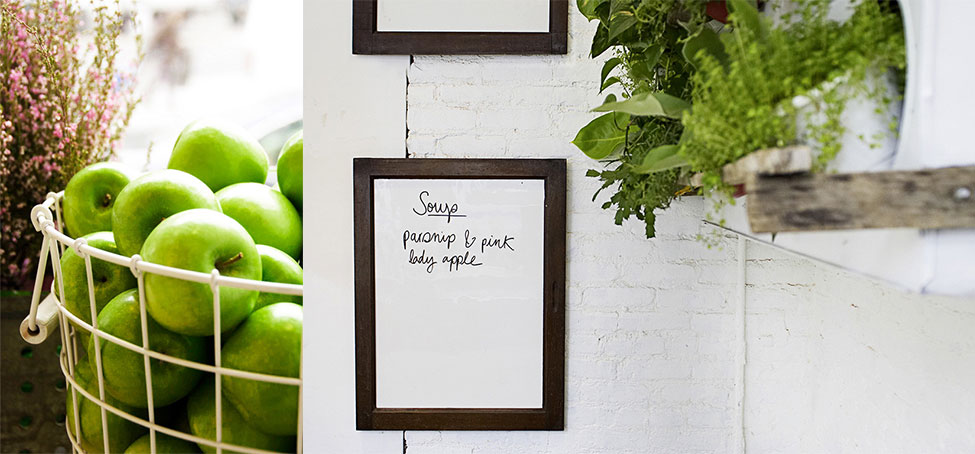 Soup
parsnip & pink
lady apple